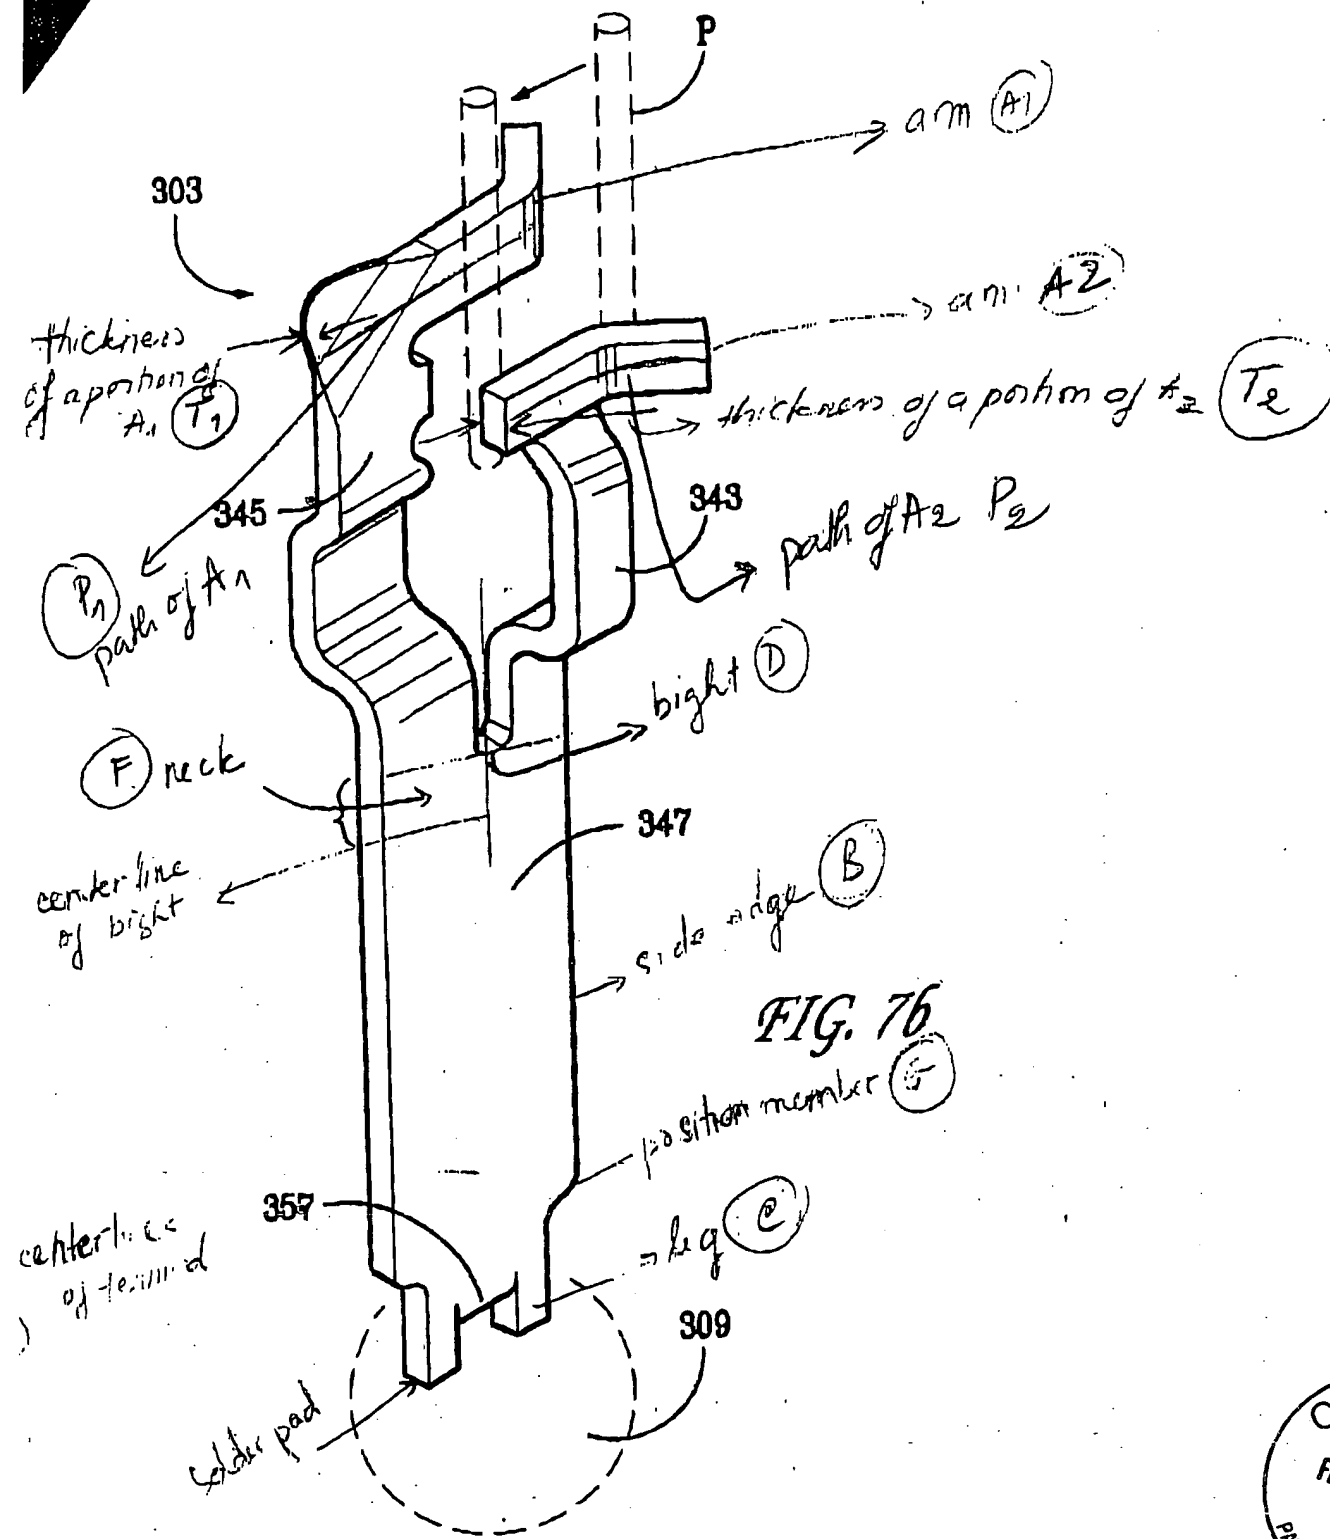 P
arm A1
303
arm A2
thickness
of a portion of
A1 T1
thickness of a portion of A2 T2
345
343
path of A2 P2
P1
path of A1
bight D
F neck
347
center line
of bight
side edge B
FIG. 76
position member
357
leg C
centerline
of
309
solder pad